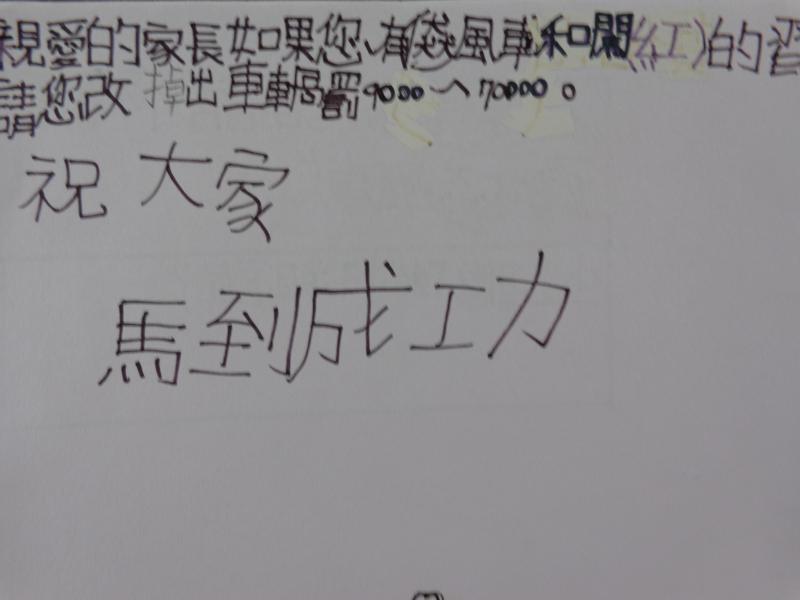 親愛的家長如果您、有飆車和闖(紅)的習
請您改掉出車罰9000~70000。
祝大家
馬到成工力